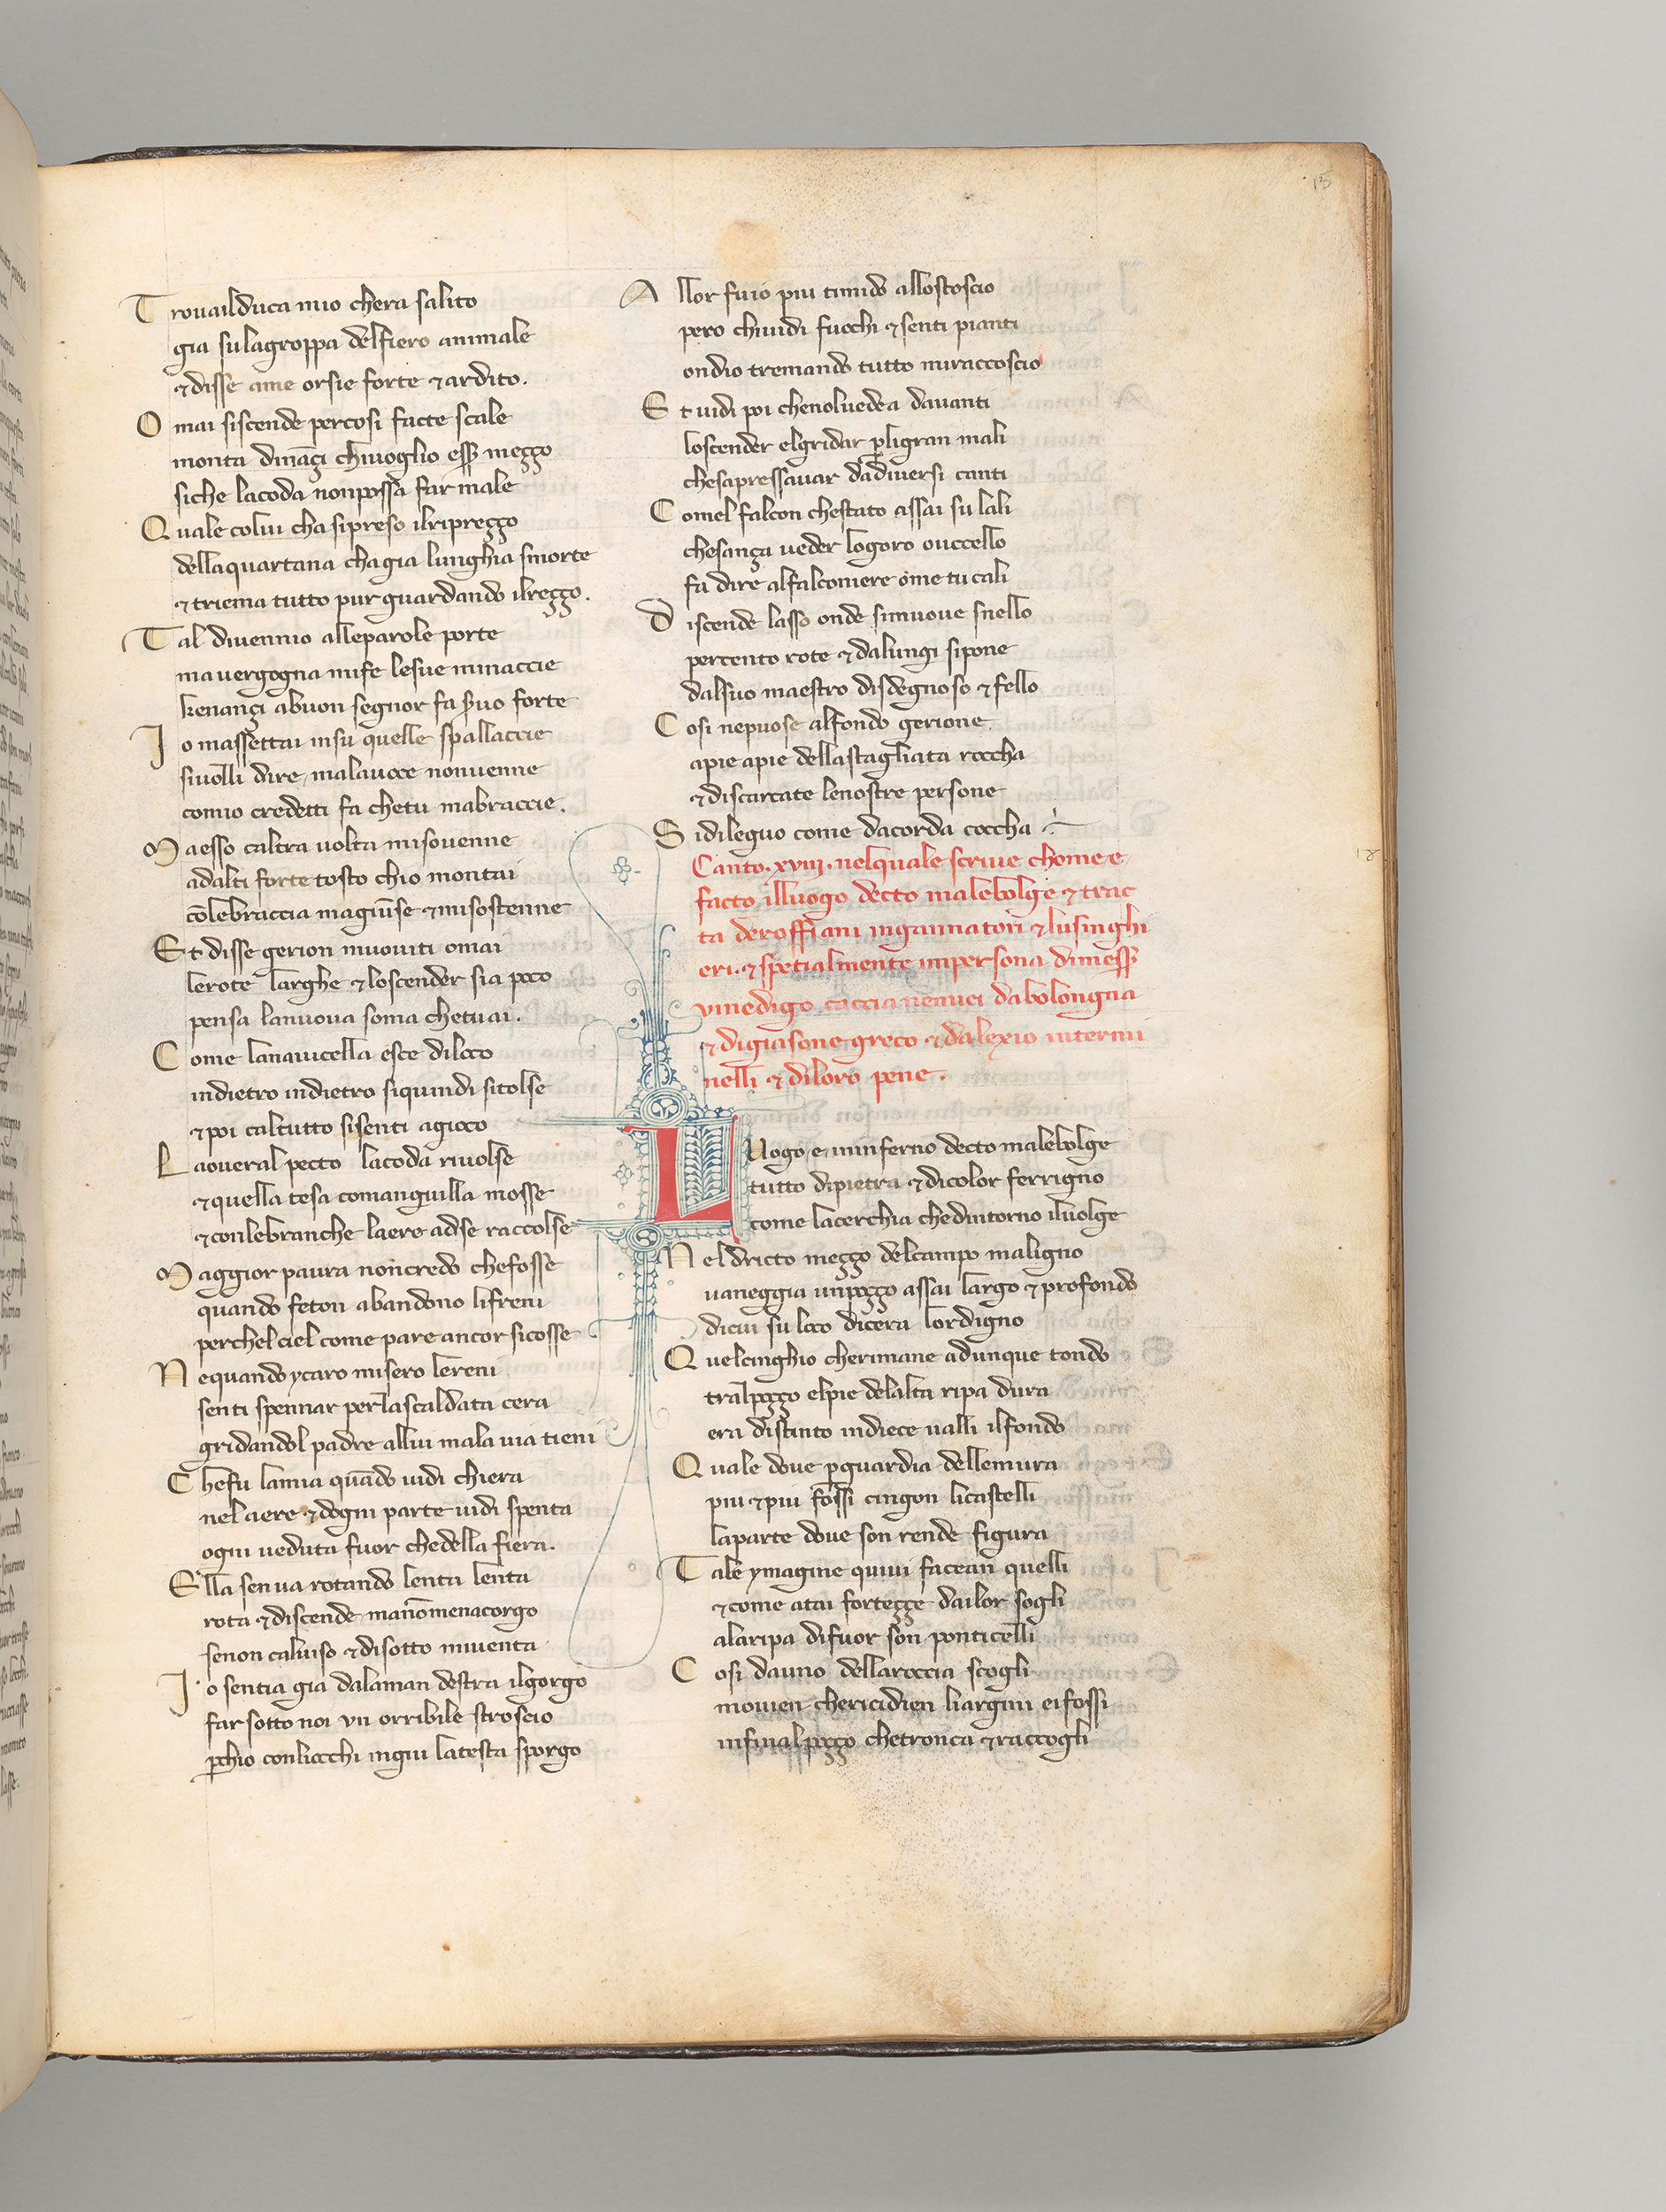 15
Trovailduca mio chera salito
gia sulagroppa delfiero animale
⁊ disse ame orsie forte ⁊ ardito.
Omai siscende percosi facte scale
monta dināçi chiuoglio esser meççо
siche lacoda nonpossa far male
Quale colui cha sipreso ilripreççо
dellaquartana chagia lunghia smorte
⁊ triema tutto pur guardando ilreççо.
Tal diuennio alleparole porte
mauergogna mife lesue minaccie
kenançi abuon segnor fa seruo forte
Io massettai insu quelle spallaccie
siuolli dire, malauoce nonuenne
comio credetti fa chetu mabraccie.
Maesso caltra uolta misouenne
adalti forte tosto chio montai
cōlebraccia magiūse ⁊ misostenne
Et disse gerion muouiti omai
lerote larghe ⁊ loscender sia poco
pensa lanuoua soma chetuai.
Come lanauicella esce diloco
indietro indietro siquindi sitolse
⁊ poi caltutto sisenti agioco
Laoueral pecto lacoda riuolse
⁊ quella tesa comanguilla mosse
⁊ conlebranche laere adse raccolse
Maggior paura noncredo chefosse
quando feton abandono lifreni
perchelciel come pare ancor sicosse
Nequando ycaro misero lereni
senti spennar perlascaldata cera
gridandol padre allui mala uia tieni
Chefu lamia quādo uidi chiera
nel aere ⁊ dogni parte uidi spenta
ogni ueduta fuor chedella fiera.
Ella senua rotando lenta lenta
rota ⁊ discende manōmenacorgo
senon caluiso ⁊ disotto miuenta
Io sentia gia dalaman destra ilgorgo
far sotto noi vn orribile stroscio
perchio conliocchi ingiu latesta sporgo
Allor fuio piu timido allostoscio
pero chiuidi fuochi ⁊ senti pianti
ondio tremando tutto miraccoscio
Et uidi poi chenoluedea dauanti
loscender elgridar perligran mali
chesapressauar dadiuersi canti
Comel falcon chestato assai su lali
chesança ueder logoro ouccello
fa dire alfalconiere ome tu cali
Discende lasso onde simuoue snello
percento rote ⁊ dalungi sipone
dalsuo maestro disdegnoso ⁊ fello
Cosi nepuose alfondo gerione
apie apie dellastagliata roccha
⁊ discarcate lenostre persone
Sidileguo come dacorda coccha
Canto. xviij. nelquale scriue chome e
facto illuogo decto malebolge ⁊ trac
ta deroffiani ingannatori ⁊ lusinghi
eri. ⁊ spetialmente inpersona dimesser
vinedigo caccianemici dabolongna
⁊ digiasone greco ⁊ dalexio intermi
nelli ⁊ diloro pene.
18
Luogo, e, ininferno decto malebolge
tutto dipietra ⁊ dicolor ferrigno
come lacerchia chedintorno iluolge
Neldricto meççо delcampo maligno
uaneggia unpoççо assai largo ⁊ profondo
dicui su loco dicera lordigno
Quelcinghio cherimane adunque tondo
tralpoççо elpie delalta ripa dura
era distinto indiece ualli ilfondo
Quale doue perguardia dellemura
piu ⁊ piu fossi cingon licastelli
laparte doue son rende figura
Tale ymagine quiui facean quelli
⁊ come atai forteççe dailor sogli
alaripa difuor son ponticelli
Cosi dauno dellaroccia scogli
mouien chericidien liargini eifossi
infinalpoççо chetronca ⁊ raccogli